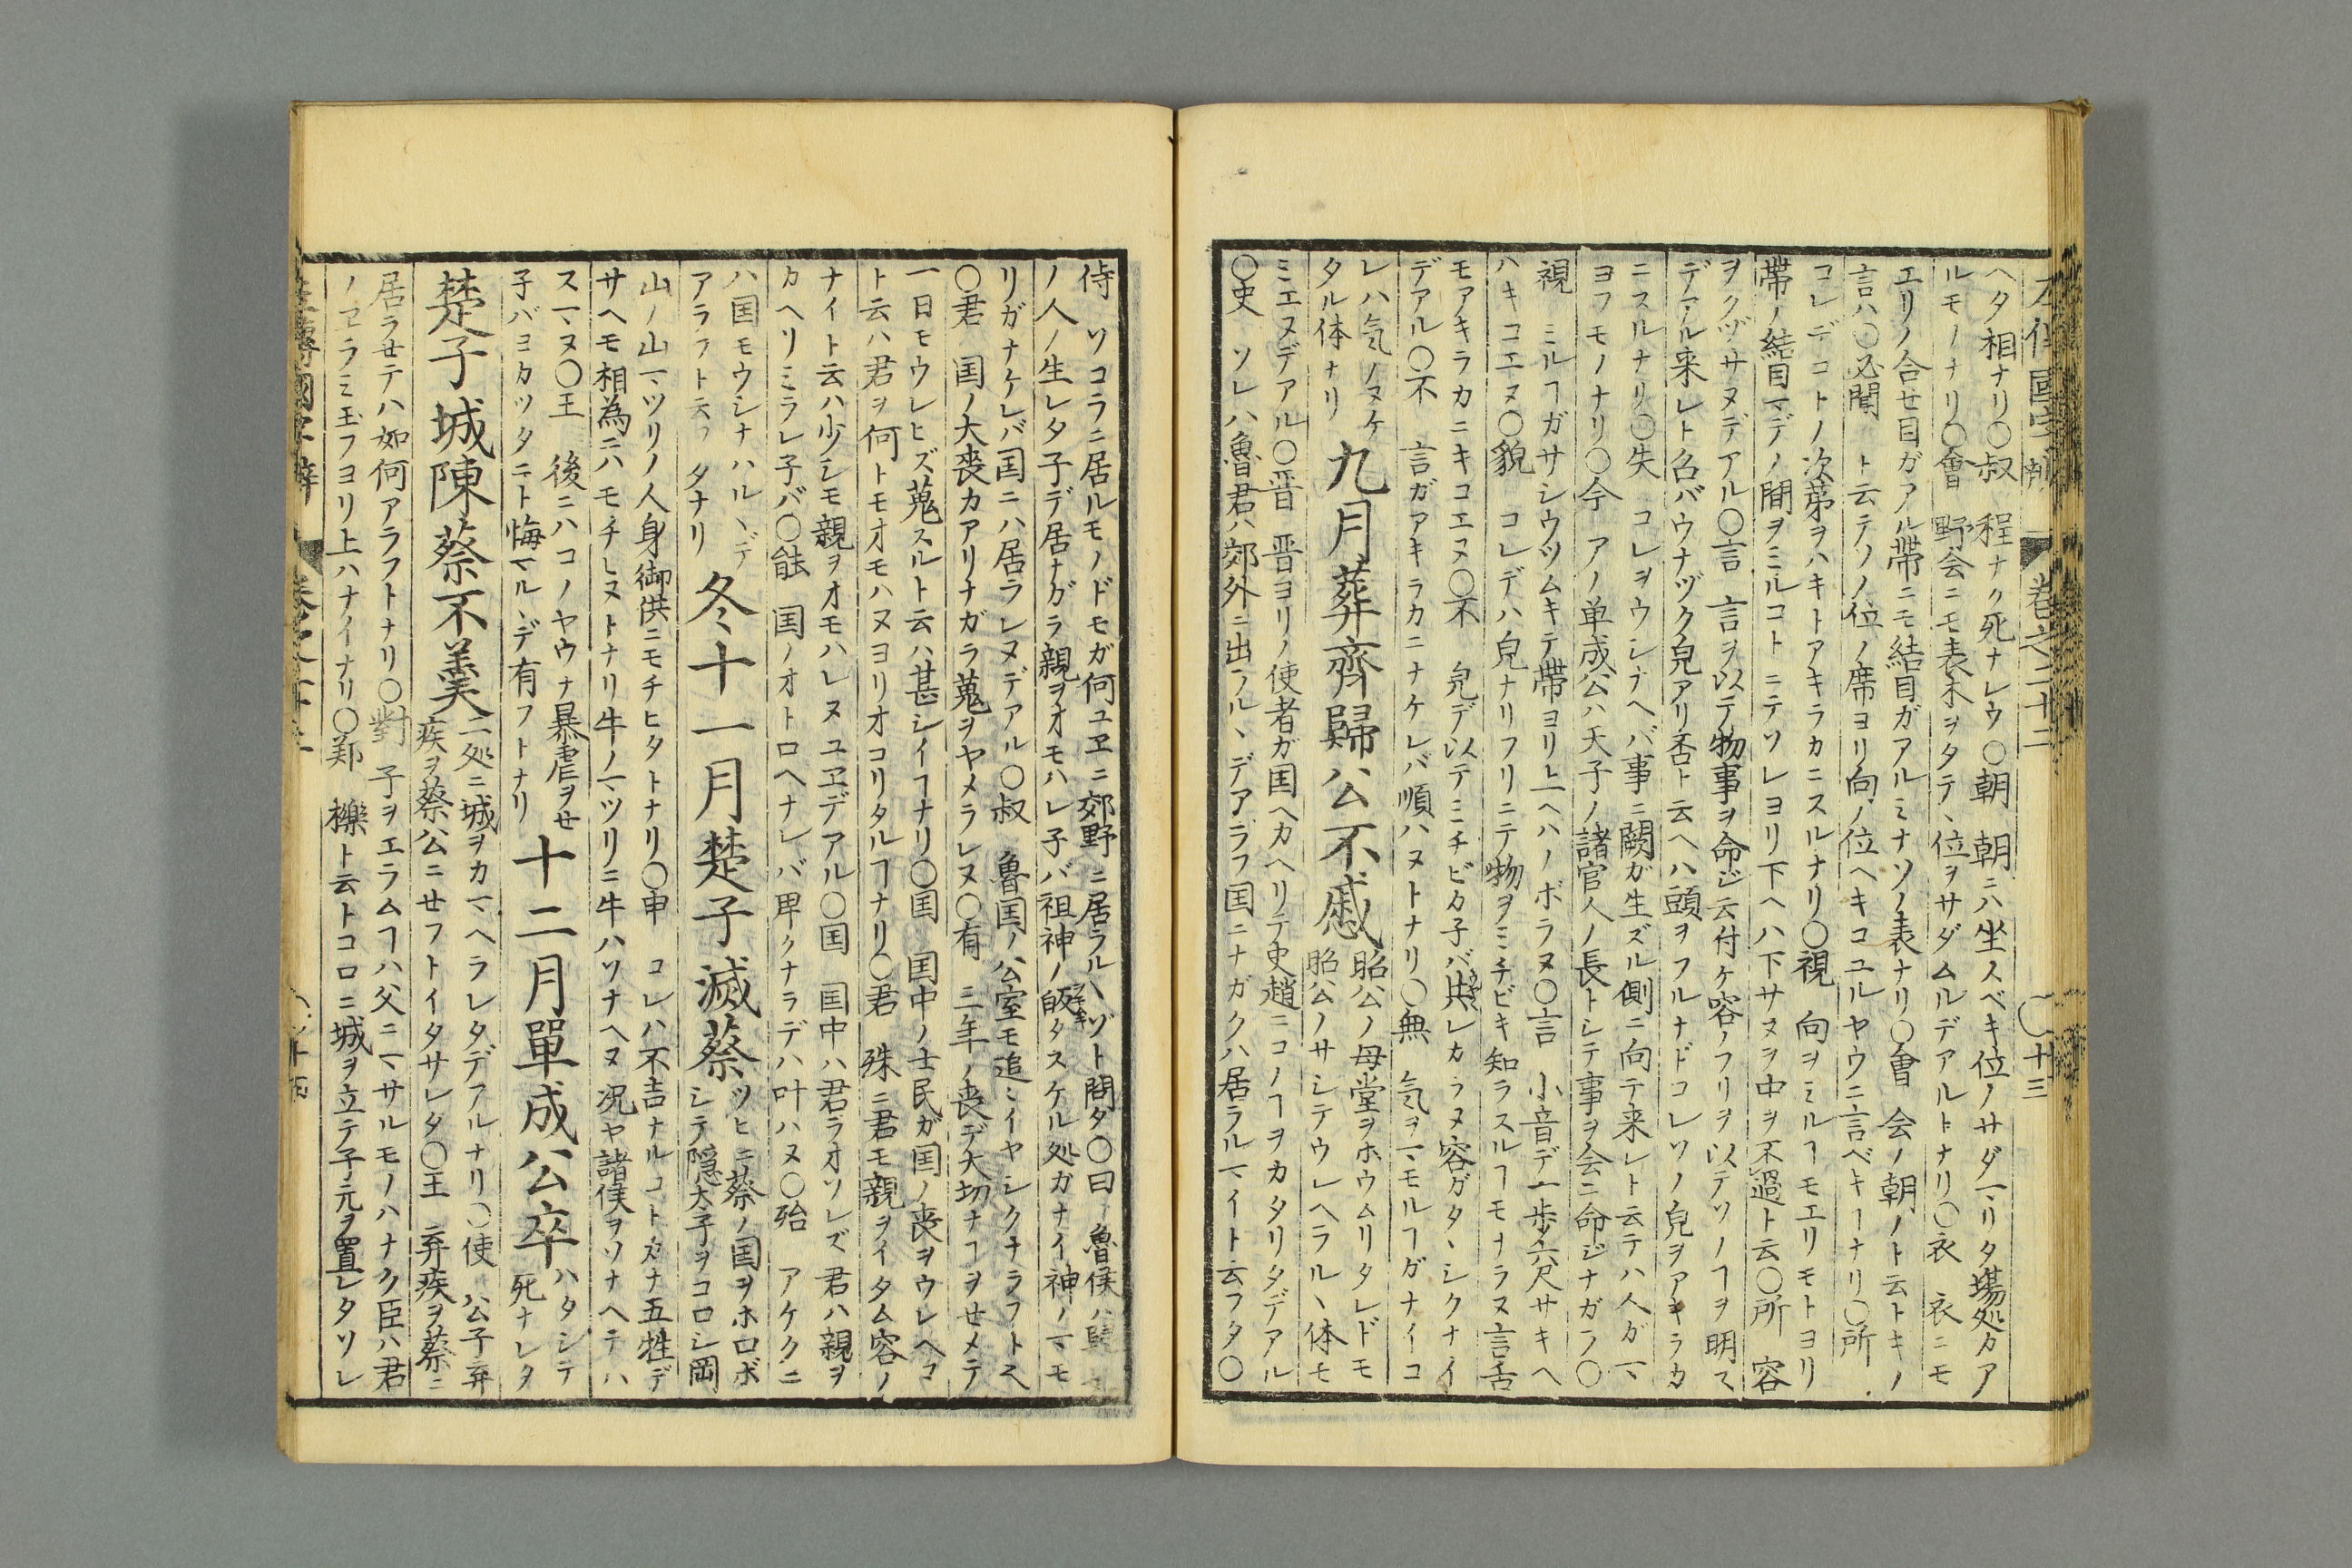 左傳國字辯 卷之二十二 〇十三
ヘタ相ナリ〇叔 程ナク死ナレウ〇朝 朝ニハ坐スベキ位ノサダマリタ場処カア
ルモノナリ〇會 野会ニモ表木ヲタテヽ位ヲサダムルデアルトナリ〇衣 衣ニモ
エリノ合せ目ガアル帶ニモ結目ガアルミナソノ表ナリ〇會 会ノ朝ノト云トキノ
言ハ〇必聞 ト云テソノ位ノ席ヨリ向ノ位ヘキコユルヤウニ言ベキヿナリ〇所
コレデコトノ次第ヲハキトアキラカニスルナリ〇視 向ヲミルヿモエリモトヨリ
帶ノ結目マデノ間ヲミルコトニテソレヨリ下ヘハ下サヌヲ中ヲ不過ト云〇所 容
ヲクヅサヌデアル〇言 言ヲ以テ物事ヲ命ジ云付ケ容ノフリヲ以テソノヿヲ明ス
デアル来レト名バウナヅク皃アリ否ト云ヘハ頭ヲフルナドコレソノ皃ヲアキラカ
ニスルナリ〇失 コレヲウシナヘバ事ニ闕ガ生ズル側ニ向テ来レト云テハ人ガマヽ
ヨフモノナリ〇今 アノ単成公ハ天子ノ諸官人ノ長トシテ事ヲ会ニ命ジナガラ〇
視 ミルヿガサシウツムキテ帶ヨリ上ヘハノボラヌ〇言 小音デ一歩六尺サキヘ
ハキコエヌ〇貌 コレデハ皃ナリフリニテ物ヲミチビキ知ラスルヿモナラヌ言舌
モアキラカニキコエヌ〇不 皃デ以テミチビカ子バ共レカラヌ容ガタヽシクナイ
デアル〇不 言ガアキラカニナケレバ順ハヌトナリ〇無 気ヲマモルヿガナイコ
レハ気ノヌケ
タル体ナリ
九月葬齊歸公不慼
昭公ノ母堂ヲホウムリタレドモ
昭公ノサシテウレヘラルヽ体モ
ミエヌデアル〇晋 晋ヨリノ使者ガ国ヘカヘリテ史趙ニコノヿヲカタリタデアル
〇史 ソレハ魯君ハ郊外ニ出フルヽデアラフ国ニナガクハ居ラルマイト云フタ〇
侍 ソコラニ居ルモノドモガ何ユヱニ郊野ニ居ラルヽゾト問タ〇曰 魯侯ハ
ノ人ノ生レタ子デ居ナガラ親ヲオモハレ子バ祖神ノ皈タスケル処カナイ神ノマモ
リガナケレバ国ニハ居ラレヌデアル〇叔 魯国ノ公室モ追ミイヤシクナラフトス
〇君 国ノ大喪カアリナガラ蒐ヲヤメラレヌ〇有 三年ノ喪デ大切ナヿヲせメテ
一日モウレヒズ蒐スルト云ハ甚シイヿナリ〇国 国中ノ士民ガ国ノ喪ヲウレヘコ
ト云ハ君ヲ何トモオモハヌヨリオコリタルヿナリ〇君 殊ニ君モ親ヲイタム容ノ
ナイト云ハ少シモ親ヲオモハレヌユヱデアル〇国 国中ハ君ラオソレズ君ハ親ヲ
カヘリミラレ子バ〇能 国ノオトロヘナレバ卑クナラデハ叶ハヌ〇殆 アケクニ
ハ国モウシナハルヽデ
アラフト云フタナリ
冬十一月楚子滅蔡
ツヒニ蔡ノ国ヲホロボ
シテ隠大子ヲコロシ岡
山ノ山マツリノ人身御供ニモチヒタトナリ〇申 コレハ不吉ナルコトカナ五牲デ
サヘモ相為ニハモチヒヌトナリ牛ノマツリニ牛ハソナヘヌ况ヤ諸侯ヲソナヘテハ
スマヌ〇王 後ニハコノヤウナ暴虐ヲせ
子バヨカツタニト悔マルヽデ有フトナリ
十二月單成公卒
ハタシテ
死ナレタ
楚子城陳蔡不羹
二処ニ城ヲカマヘラレタデアルナリ〇使 公子弃
疾ヲ蔡公ニせフトイタサレタ〇王 弃疾ヲ蔡ニ
居ラせテハ如何アラフトナリ〇對 子ヲエラムヿハ父ニマサルモノハナク臣ハ君
ノヱラミ玉フヨリ上ハナイナリ〇鄭 櫟ト云トコロニ城ヲ立テ子元ヲ置レタソレ